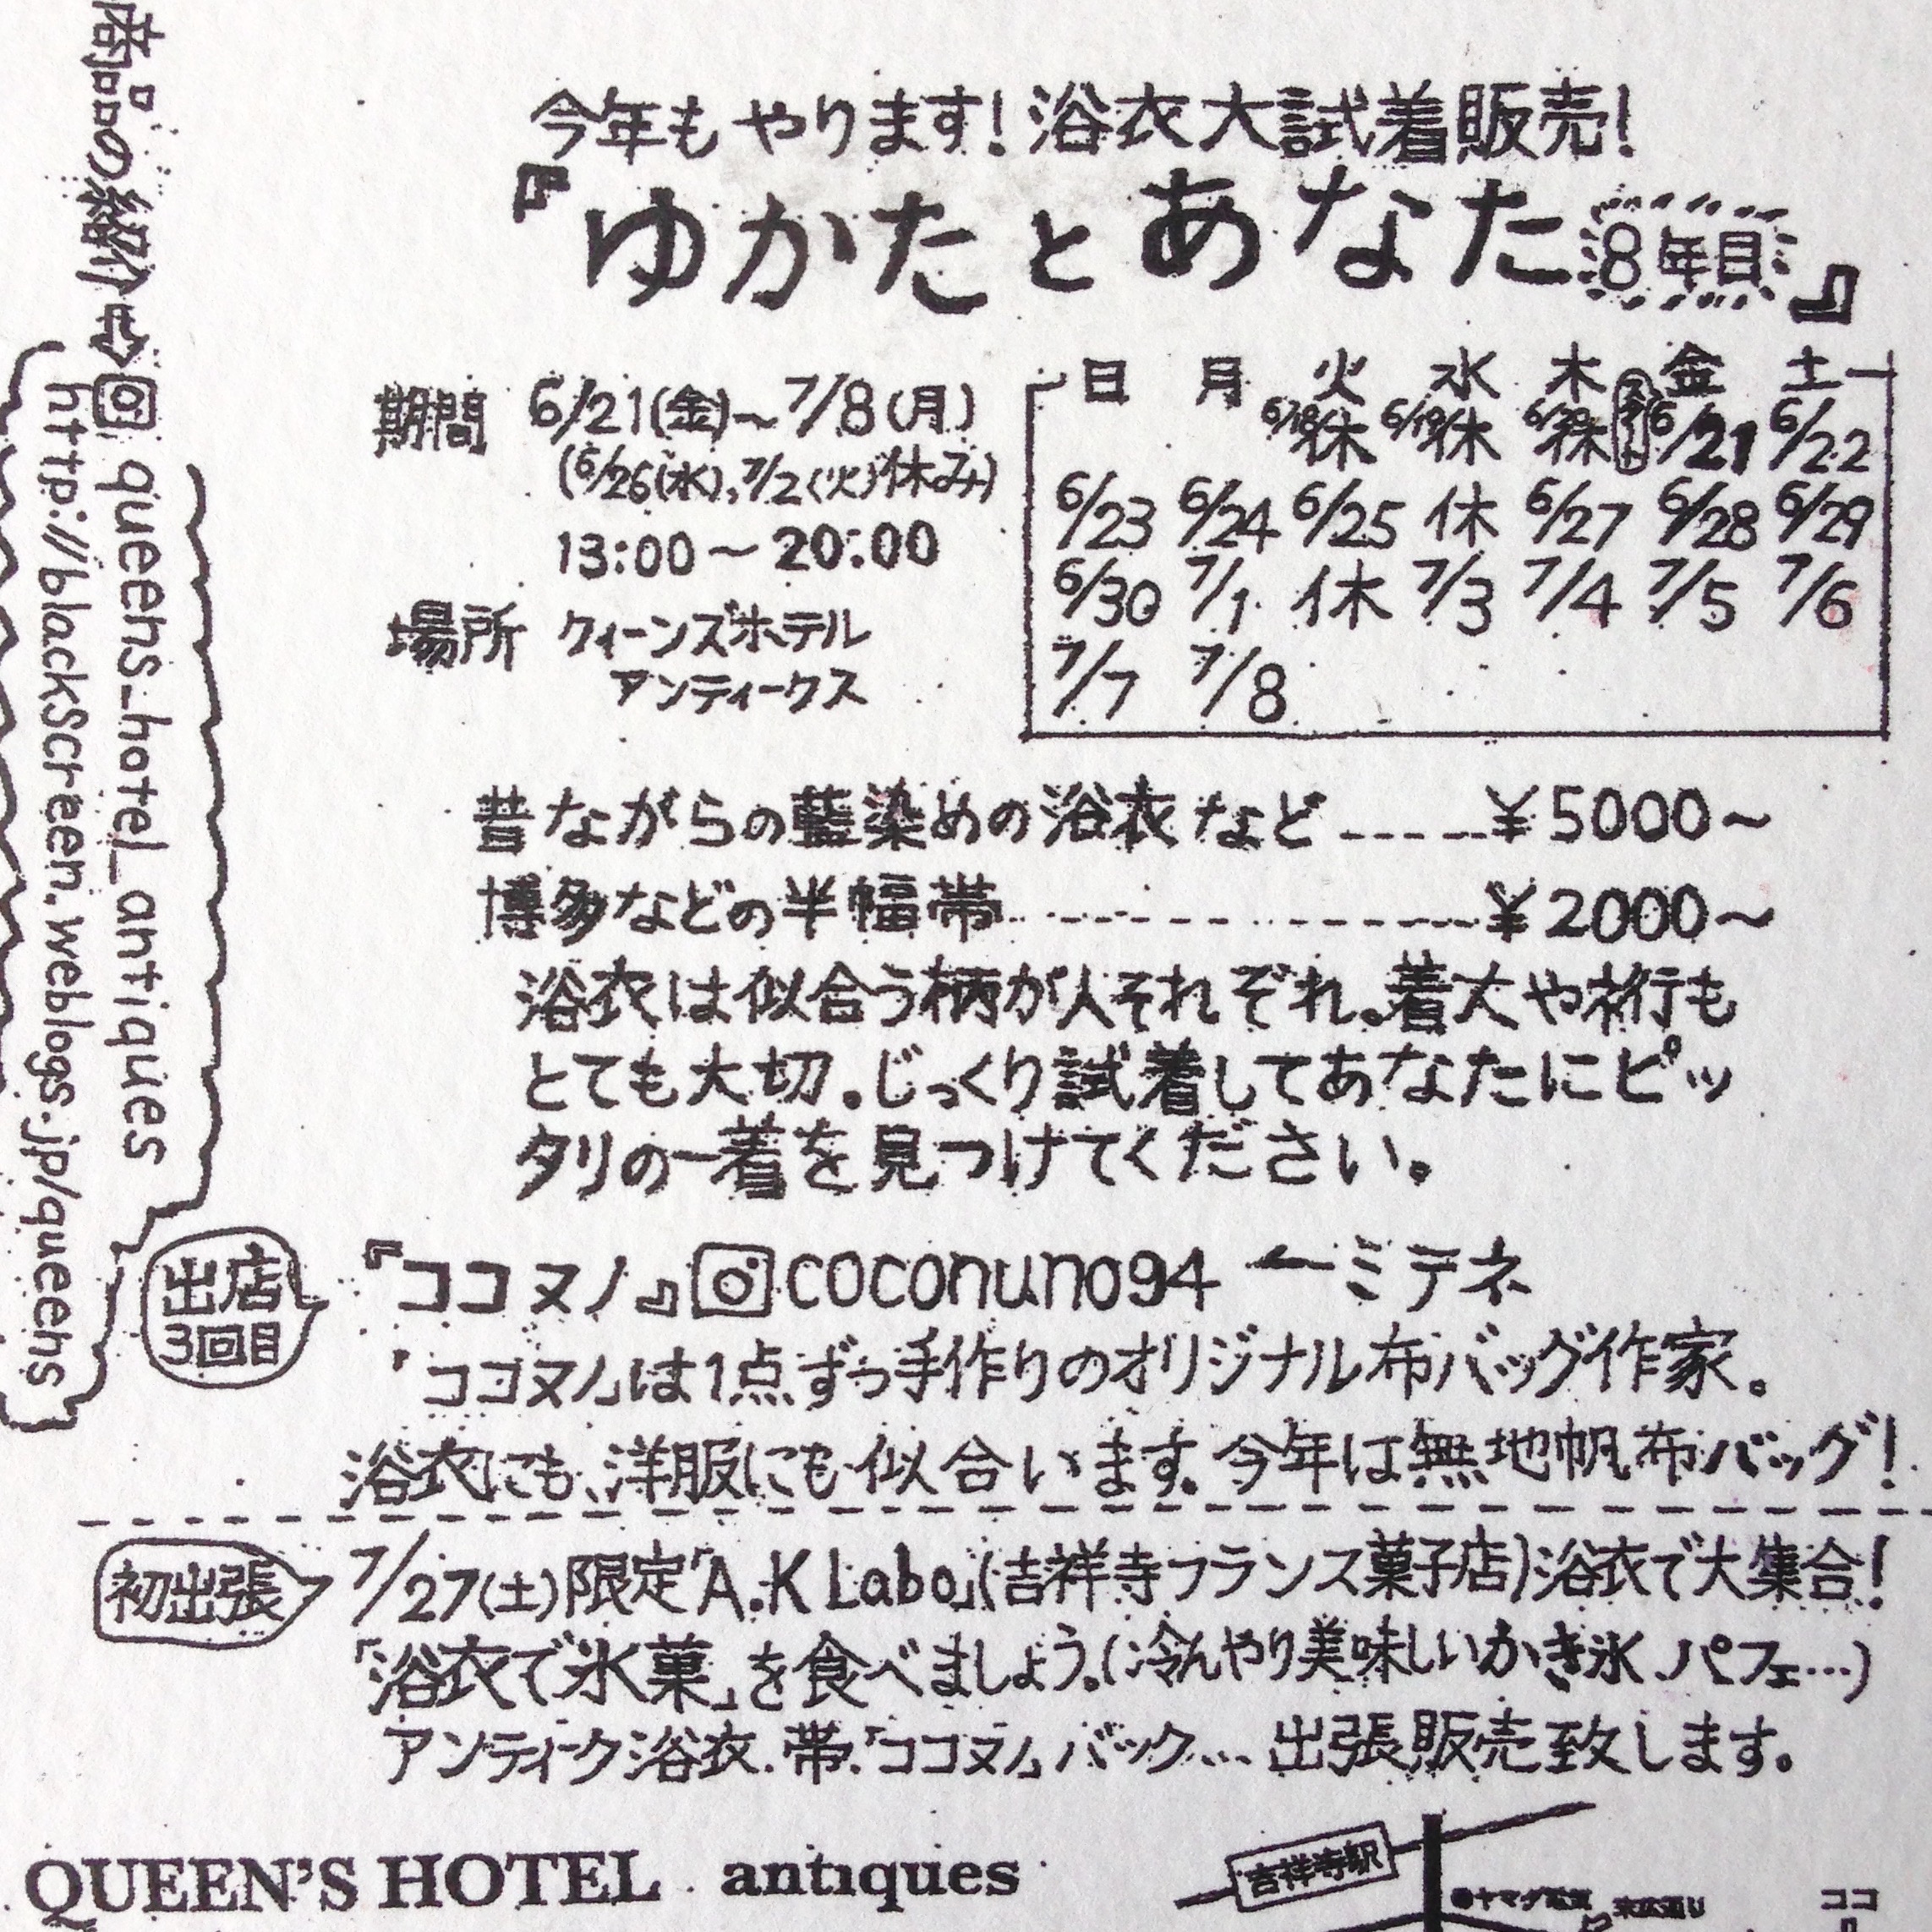 今年もやります!浴衣大試着販売!
『ゆかたとあなた 8年目』
期間 6/21(金)~7/8(月)
(6/26(水),7/2(火)休み)
13:00~20:00
場所 クィーンズホテル
アンティークス
日 月 火 水 木 金 土
6/18休 6/19休 6/20休 スタート 6/21 6/22
6/23 6/24 6/25 休 6/27 6/28 6/29
6/30 7/1 休 7/3 7/4 7/5 7/6
7/7 7/8
昔ながらの藍染めの浴衣など-----¥5000~
博多などの半幅帯-------------¥2000~
浴衣は似合う柄が人それぞれ。着丈や裄も
とても大切。じっくり試着してあなたにピッ
タリの一着を見つけてください。
出店
3回目
『ココヌノ』coconuno94 ←ミテネ
「ココヌノ」は1点ずつ手作りのオリジナル布バッグ作家。
浴衣にも、洋服にも似合います。今年は無地帆布バッグ!
初出張
7/27(土)限定「A.K Labo」(吉祥寺フランス菓子店)浴衣で大集合!
「浴衣で氷菓」を食べましょう。(冷んやり美味しいかき氷、パフェ…)
アンティーク浴衣.帯.「ココヌノ」バック… 出張販売致します。
商品の紹介⇨ queens_hotel_antiques
http://blackScreen.weblogs.jp/queens
QUEEN'S HOTEL antiques
吉祥寺駅
ココ